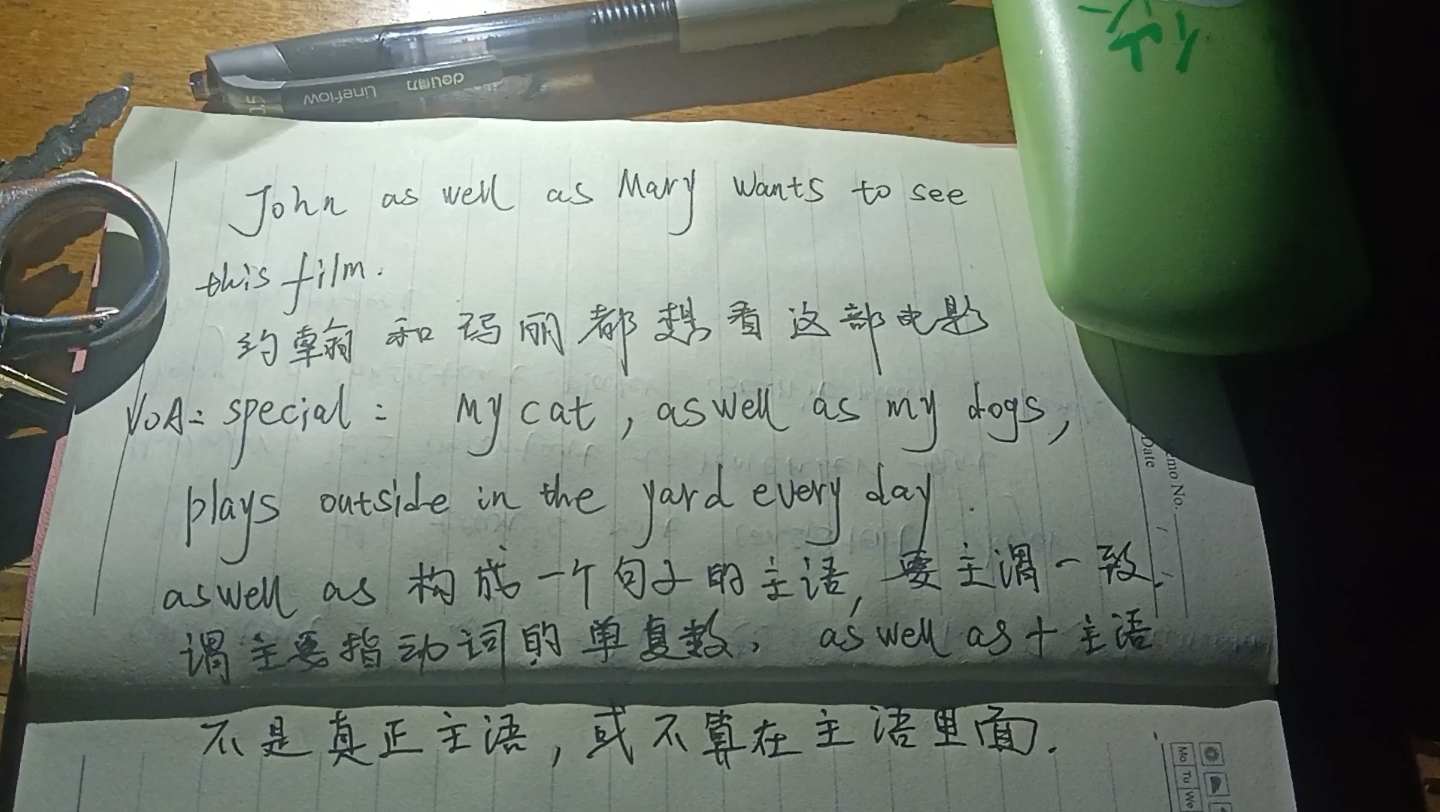 deli得力 Lineflow 0.5
John as well as Mary wants to see
this film.
约翰和玛丽都想看这部电影
VOA: special: My cat, aswell as my dogs,
plays outside in the yard every day.
aswell as 构成一个句子的主语, 要主谓一致,
谓主要指动词的单复数, as well as + 主语
不是真正主语, 或不算在主语里面.
emo No.
Date
Mo Tu We